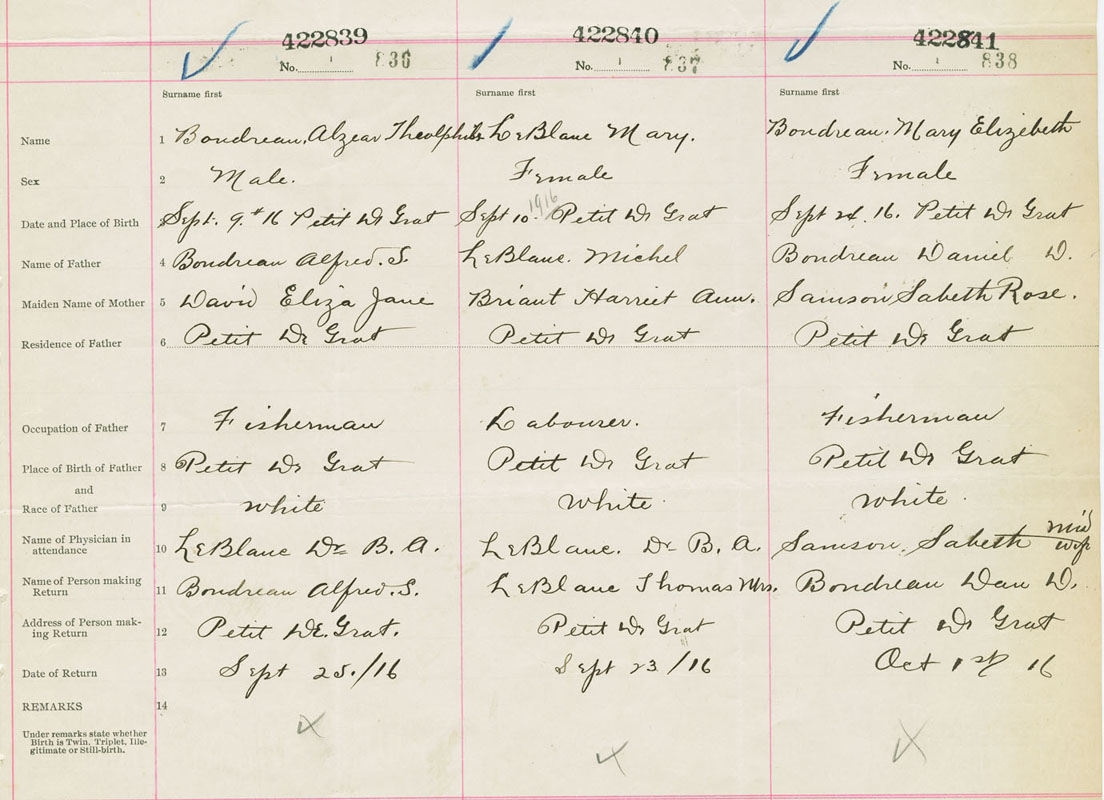 422839 422840 422841
No. 1 836 No. 1 837 No. 1 838
Surname first Surname first Surname first
Name 1 Boudreau, Alzear Theolphile LeBlanc Mary. Boudreau. Mary Elizebeth
Sex 2 Male. Female Female
Date and Place of Birth 3 Sept. 9th 16 Petit De Grat Sept 10. 1916 Petit De Grat Sept 24. 16. Petit De Grat
Name of Father 4 Boudreau Alfred. S. LeBlanc. Michel Boudreau Daniel D.
Maiden Name of Mother 5 David Eliza Jane Briant Harriet Ann. Samson Sabeth Rose.
Residence of Father 6 Petit De Grat Petit De Grat Petit De Grat
Occupation of Father 7 Fisherman Labourer. Fisherman
Place of Birth of Father 8 Petit De Grat Petit De Grat Petit De Grat
and
Race of Father 9 white White white.
Name of Physician in
attendance 10 LeBlanc Dr B. A. LeBlanc. Dr B. A. Samson, Sabeth mid wife
Name of Person making
Return 11 Boudreau Alfred. S. LeBlanc Thomas Mrs. Boudreau Dan D.
Address of Person mak-
ing Return 12 Petit DE. Grat. Petit De Grat Petit De Grat
Date of Return 13 Sept 25./16 Sept 23/16 Oct 1st 16
REMARKS 14
Under remarks state whether
Birth is Twin, Triplet, Ille-
gitimate or Still-birth.